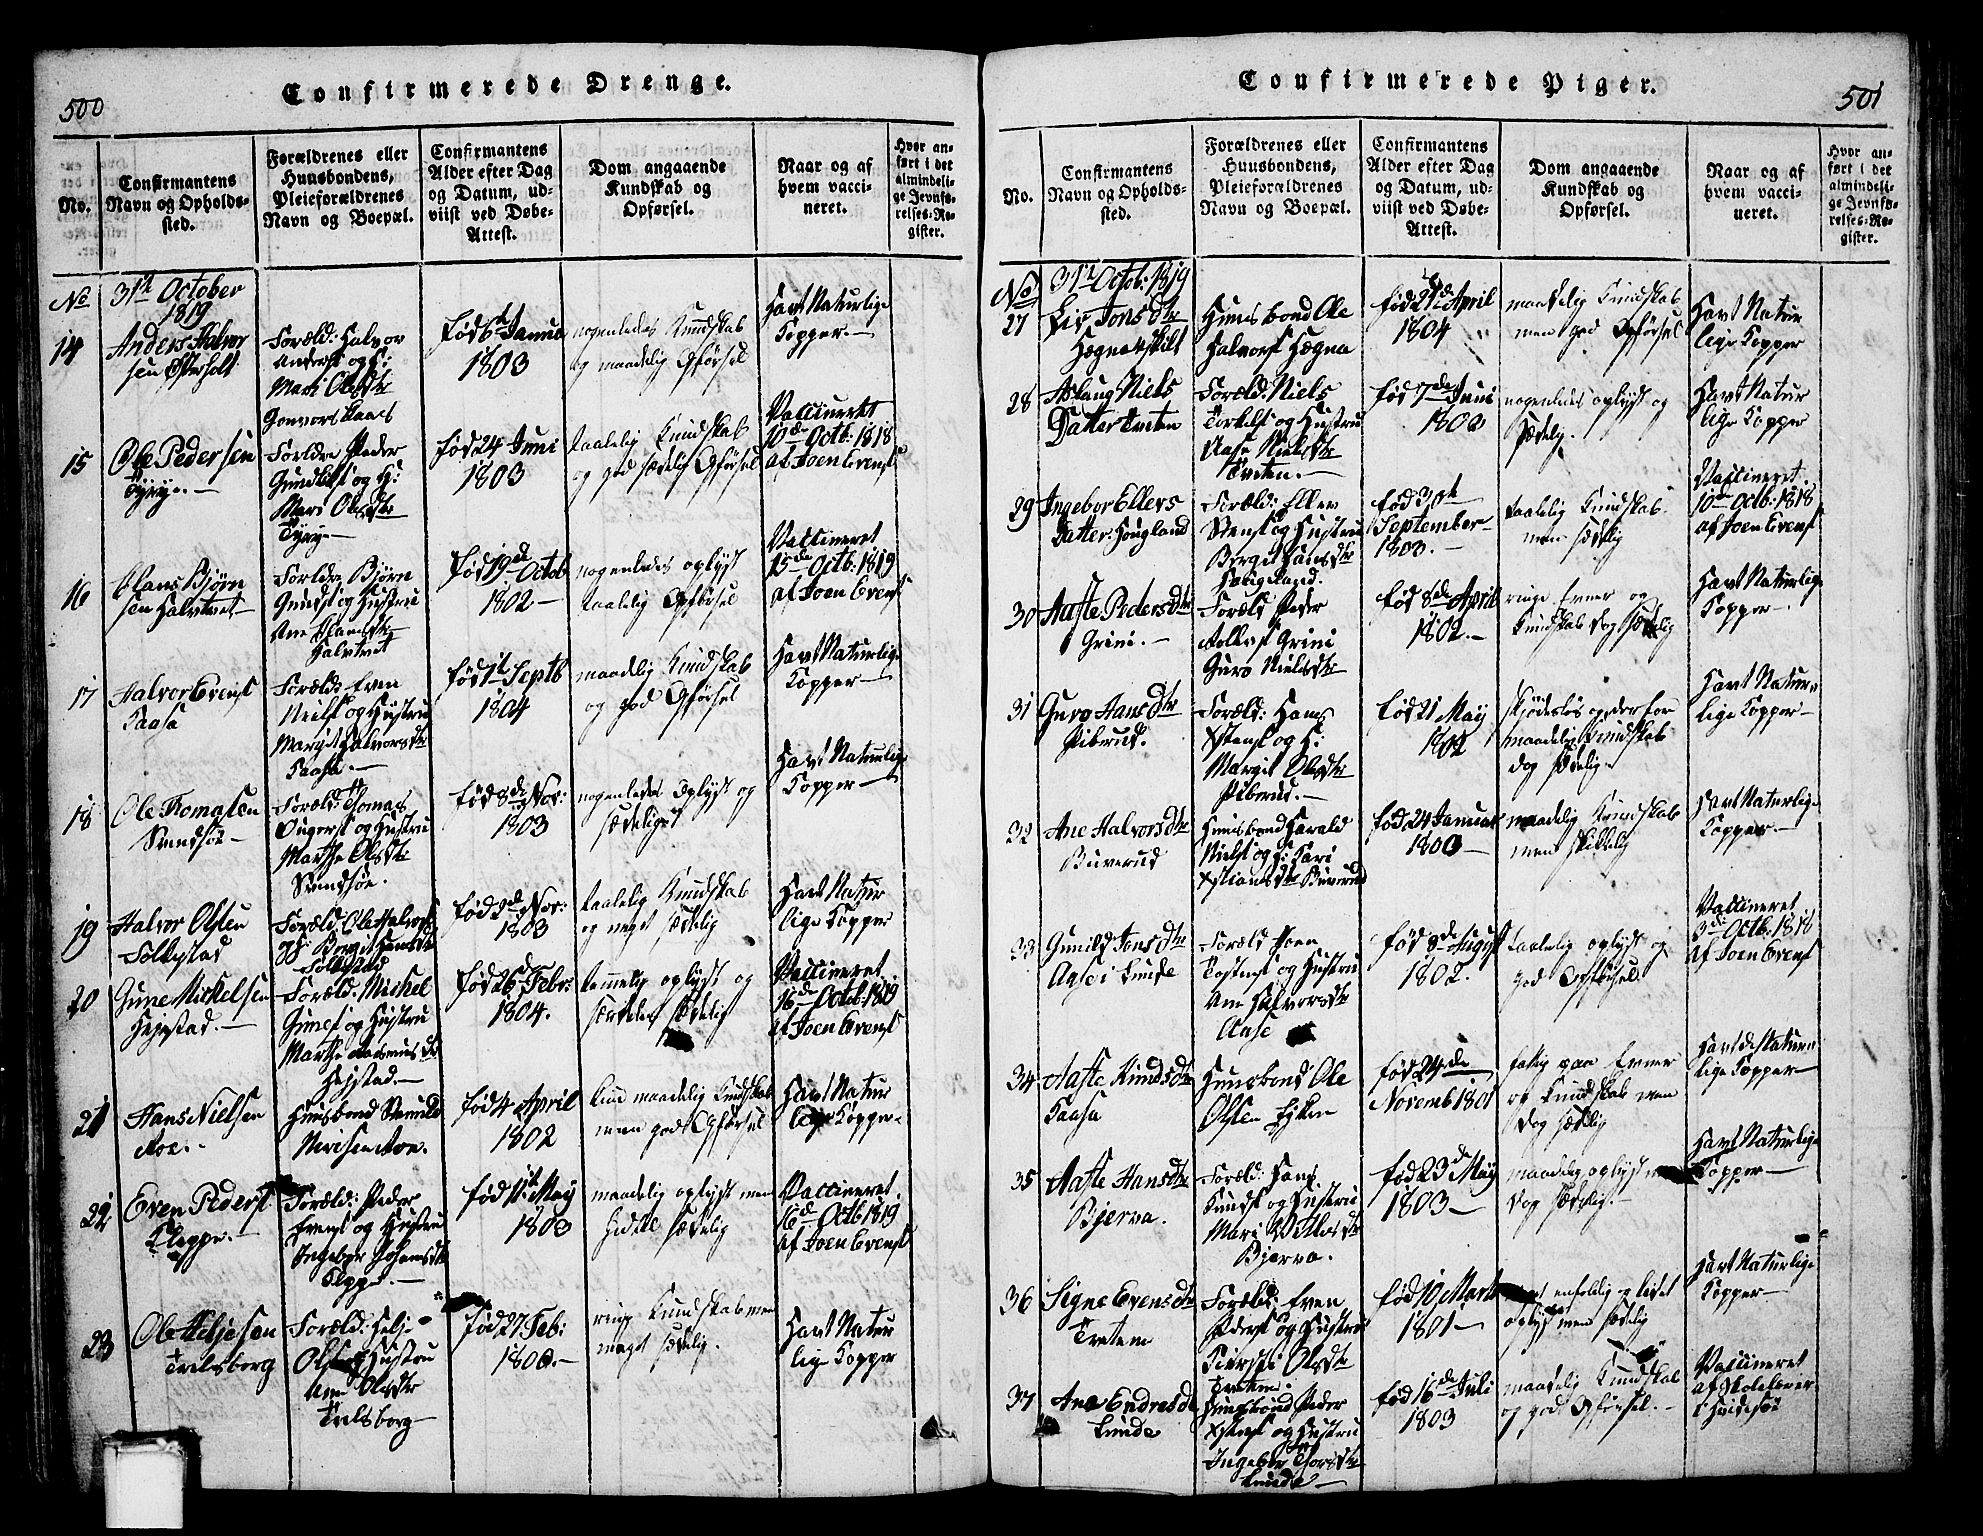 500
Confirmerede Drenge.
No.
Confirmantens
Navn og Opholds-
sted.
Forældrenes eller
Huusbondens,
Pleieforældrenes
Navn og Boepæl.
Confirmantens
Alder efter Dag
og Datum, ud-
viist ved Døbe-
Attest.
Dom angaaende
Kundskab og
Opførsel.
Naar og af
hvem vacci-
neret.
Hvor an-
ført i det
almindeli-
ge Jevnfø-
relses-Re-
gister.
No
31te October
1819
14
Anders Halvor
sen Østerholt
Foræld: Halvor
Anders og H:
Mari Olsdtr
Gonvorskaas
fød 6te Janua
1803
nogenledes Kundskab
og maadelig Opførsel
Havt Naturlige
Kopper
15
Ole Pedersen
Tyrye
Forldre Peder
Gundes og H:
Mari Olsdtr
Tyrye
fød 24 Juni
1803
taalelig Kundskab
og god sædelig Opførsel
Vaccineret
10de Octb: 1818
af Joen Evens
16
Clans Bjørn
sen Halvtvet
Forldre Bjørn
Gunds og Hustru
Ane
Halvtvet
fød 19de Octob
1802
nogenledes oplyst
taalelig Opførsel
Vaccineret
15de Octb: 1819
af Joen Evens
17
Halvor Evens
Kaasa
Foræld: Even
Niels og Hustru
Margit Halvorsdtr
Kaasa
fød 1te Septb
1804
maadlig Kundskab
og god Opførsel
Havt Naturlige
Kopper
18
Ole Thomasen
Svendsøe
Foræld: Thomas
og Hustru
Marthe Olsdtr
Svendsøe.
fød 8de Nov:
1803
nogenledes oplyst og
sædeliget
Havt Naturlige
Kopper
19
Halvor Olsen
Folkestad
Foræld: Ole Halvors
Folkestad
fød 2de Nov:
1803
taalelig Kundskab
og meget sædelig
Havt Natur
lige Kopper
20
Gune Mickelsen
Hejestad.
Foræld: Mickel
Gunes og Hustru
Marthe Rasmus dr
Hejstad.
fød 26 Febr:
1804.
temmelig oplyst og
særdeles sædelig
Vaccineret
16de Octob: 1819
af Joen Evens
21
Hans Nielsen
Roe.
Huusbond
Roe.
fød 4 April
1802
kun maadelig Kundskab
men god Opførsel
Havt Natur
lige Kopper
22
Even Peders
Kleppe.
Foræld: Peder
Evens og Hustru
Ingebor Johansdtr
Kleppe.
fød 11te May
1803
maadelig oplyst men
sædelig
Vaccineret
16de Octb 1819
af Joen Evens
23
Ole Heljesen
Trelsborg
Foræld: Helje
Ols Hustru
Ane Olsdtr
Trelsborg
fød 27 Feb:
1800.
ringe Kundskab men
meget sædelig.
Havt Natur
lige Kopper
Confirmerede Piger.
501
No.
Confirmantens
Navn og Opholds-
sted.
Forældrenes eller
Huusbondens,
Pleieforældrenes
Navn og Boepæl.
Confirmantens
Alder efter Dag
og Datum, ud-
viist ved Døbe-
Attest.
Dom angaaende
Kundskab og
Opførsel.
Naar og af
hvem vacci-
neret.
Hvor an-
ført i det
almindeli-
ge Jevnfø-
relses-Re-
gister.
No
31te Octob: 1819
27
Liv Jons dtr
Hægneskilt
Huusbond Ole
Halvors Hægna
fød 21de April
1804
maadelig Kundskab
men god Opførsel
Havt Natur
lige Kopper
28
Aslaug Niels
Datter Tveten
Foræld: Niels
Torkels og Hustru
Aase Nielsdtr
Tveten.
fød 7de Juni
nogenledes oplyst og
sædelig.
Havt Natur
lige Kopper
29
Ingebor Ellers
Datter: Hougland
Foræld: Eller
Stens og Hustru
Borgit Hansdtr
Haugeland.
fød 30te
September
1803.
taalelig Kundskab
men sædelig
Vaccineret
10de Octb: 1818
af Joen Evens
30
Aaste Peders dtr
Grini.
Foræld Peder
Rolleks Grini
Guro Nielsdtr
fød 8de April
1802.
ringe Evner og
Kundskab dog sædelig
Havt Naturlige
Kopper
31
Guro Hansdtr
Piberud.
Foræld: Hans
Xstens og H:
Margit Olsdtr
Piberud.
fød 21 May
skjødesløs og derfor
maadelig Kundskab
dog sædelig
Havt Natur
lige Kopper
32
Ane Halvorsdtr
Buverud
Huusbond Harald
Niels og H: Kari
Xstiansdtr Buverud
fød 24 Januar
1803
maadelig Kundskab
men skikkelig
Havt Naturlige
Kopper
33
Gunild Jons dtr
Aase i Lunde
Foræld Joen
Tostens og Hustru
Ane Halvorsdtr
Aase
fød 8de Augst
1802.
taalelig oplyst og
god Opførsel
Vaccineret
3de Octb: 1818
af Joen Evens
34
Aaste Knudsdtr
Kaasa
Huusbond Ole
Olsen Eyken
fød 24de
Novemb 1801
fatig paa Evner
og Kundskab men
dog sædelig
Havt de Natur
lige Kopper
35
Aaste Hansdtr
Bjerva.
Foræld: Hans
Knuds og Hustru
Mari
Bjerva.
fød 23de May
1803
maadelig oplyst
dog sædelig.
Havt Naturlige
Kopper
36
Signe Evensdtr
Tvetem
Foræld: Even
Peders og Hustru
Kiersti Olsdtr
Tvetem.
fød 10 Marts
1801
enfoldig og lidet
oplyst men sædelig
Havt Naturlige
Kopper
37
Ane Endresdtr
Lunde
Huusbond Peder
Xstens og Hustru
Ingebor Thorsdtr
Lunde
fød 16de Juli
1803
maadelig Kundskab
og god Opførsel.
Vaccineret
af Skolelærer